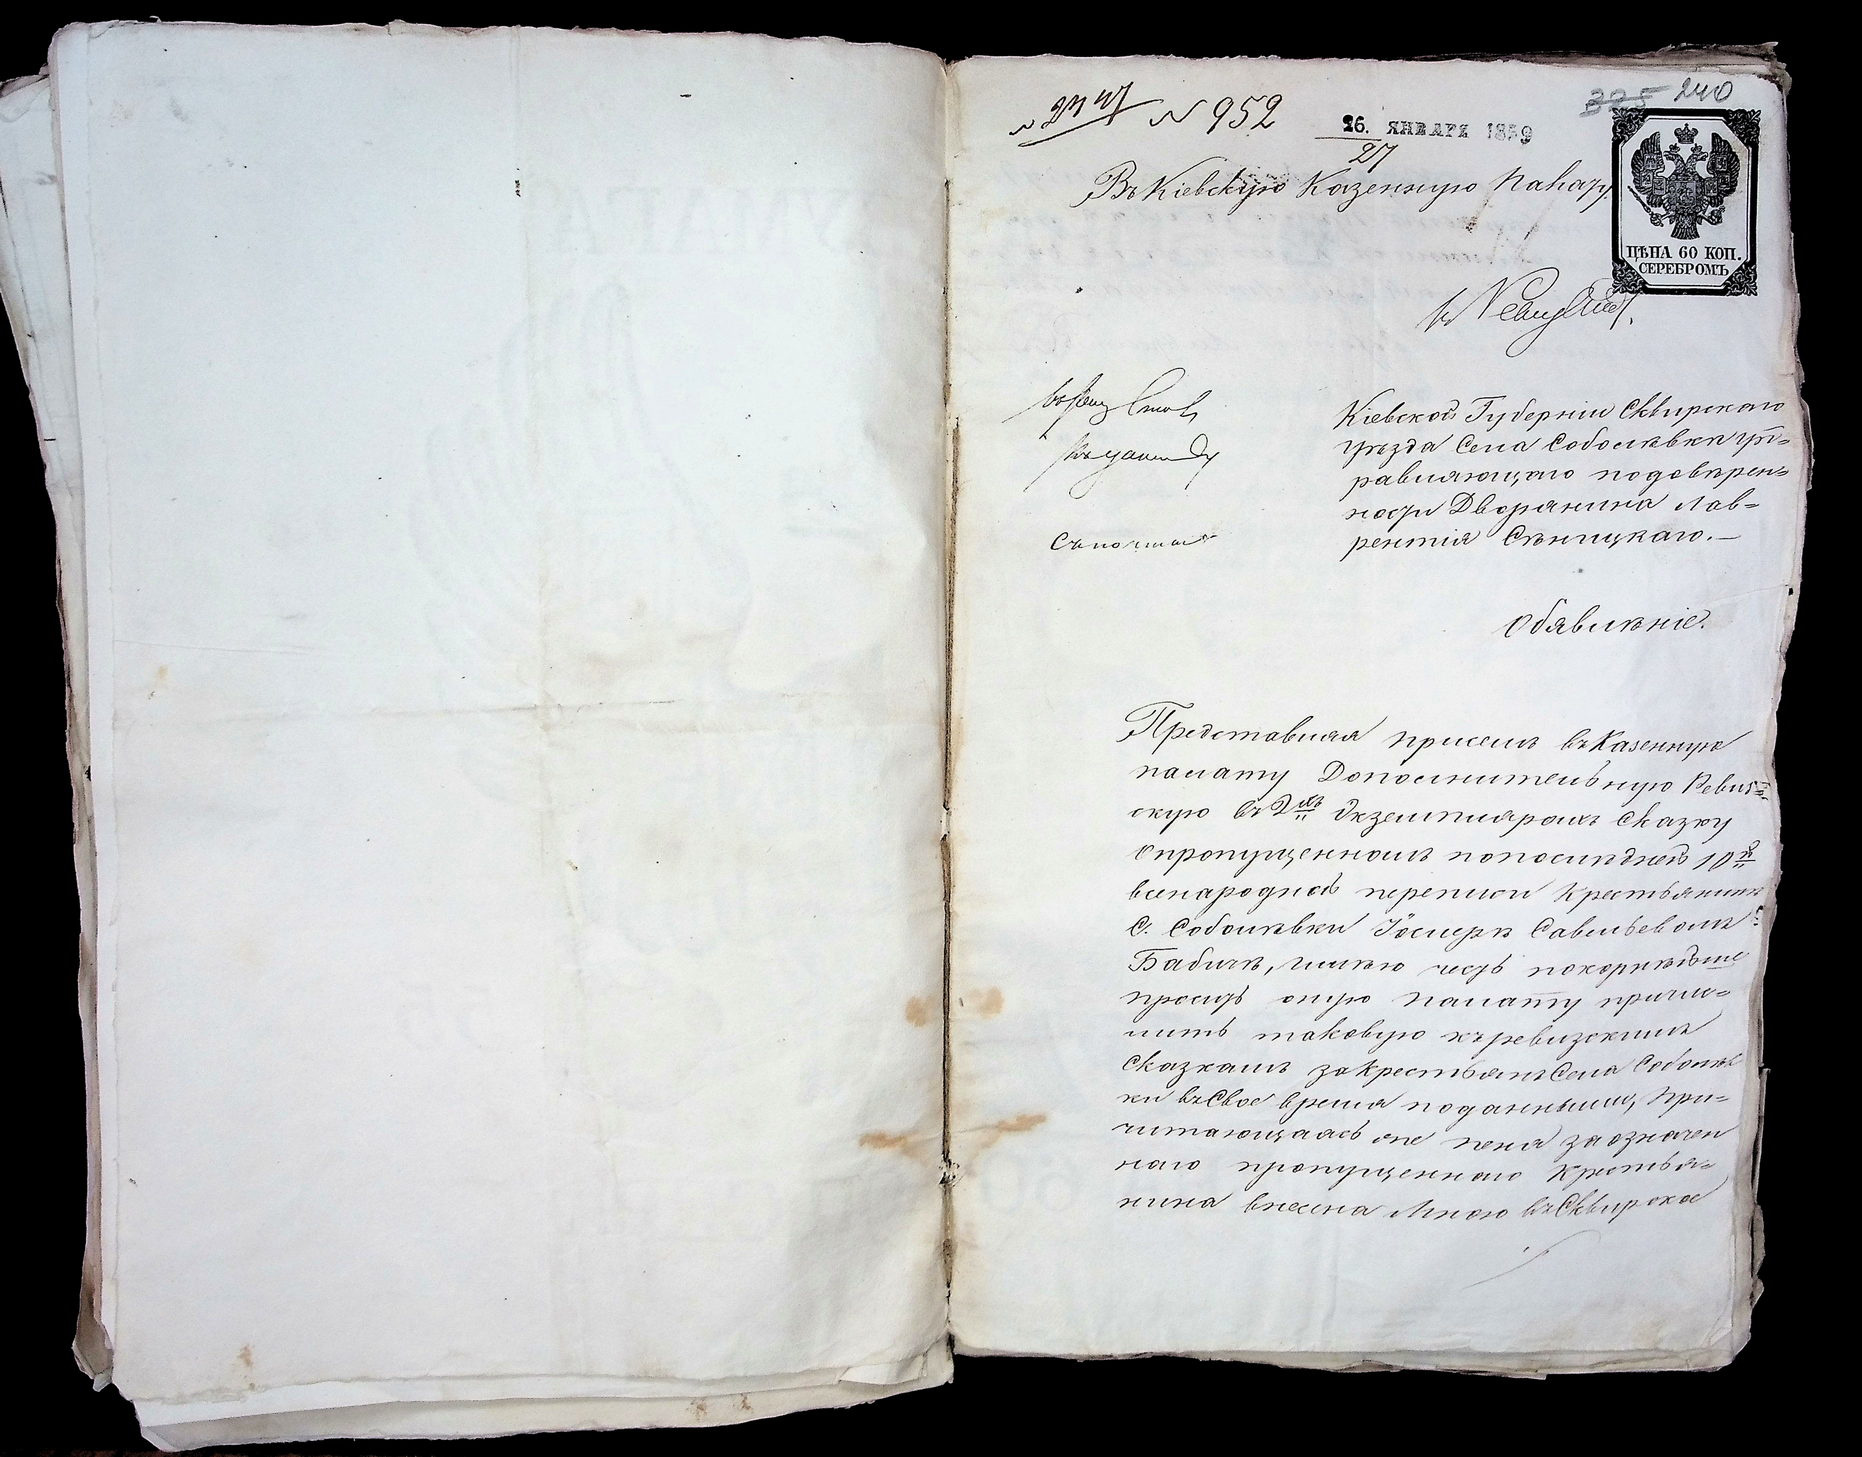 № 952
325 240
26. ЯНВАРЯ 1859
27
Въ Кіевскую Казенную Палату
ЦѢНА 60 КОП.
СЕРЕБРОМЪ
Кіевской Губерніи Сквирскаго
уѣзда Села Соболѣвки уп=
равляющаго подовѣрен=
ности Дворянина Лав=
рентія Сѣницкаго.—
Обявленіе.
Представляя присемъ въ Казенную
палату Дополнительную Ревиз=
скую въ 2хъ Экземплярахъ Сказку
опропущенномъ попослѣдней 10й
всенародной переписи Крестьянинѣ
С. Соболѣвки Іосифѣ Савельевомъ
Бабичѣ, имѣю честь покорнѣйше
просить оную палату причи=
слить таковую къ ревизскимъ
Сказкамъ за Крестьянъ Села Соболѣв
ки въ Свое время поданнымъ, При=
читающаясь же пеня за означен
наго пропущеннаго Крестья=
нина внесена Мною въ Сквирское